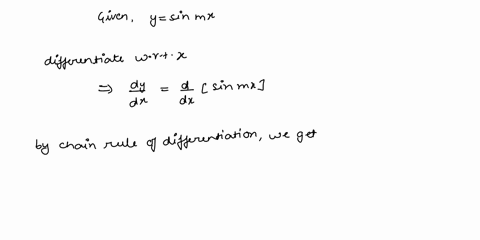 Given, y = sin mx
differentiate w.r.t. x
⇒ dy/dx = d/dx [sin mx]
by chain rule of differentiation, we get